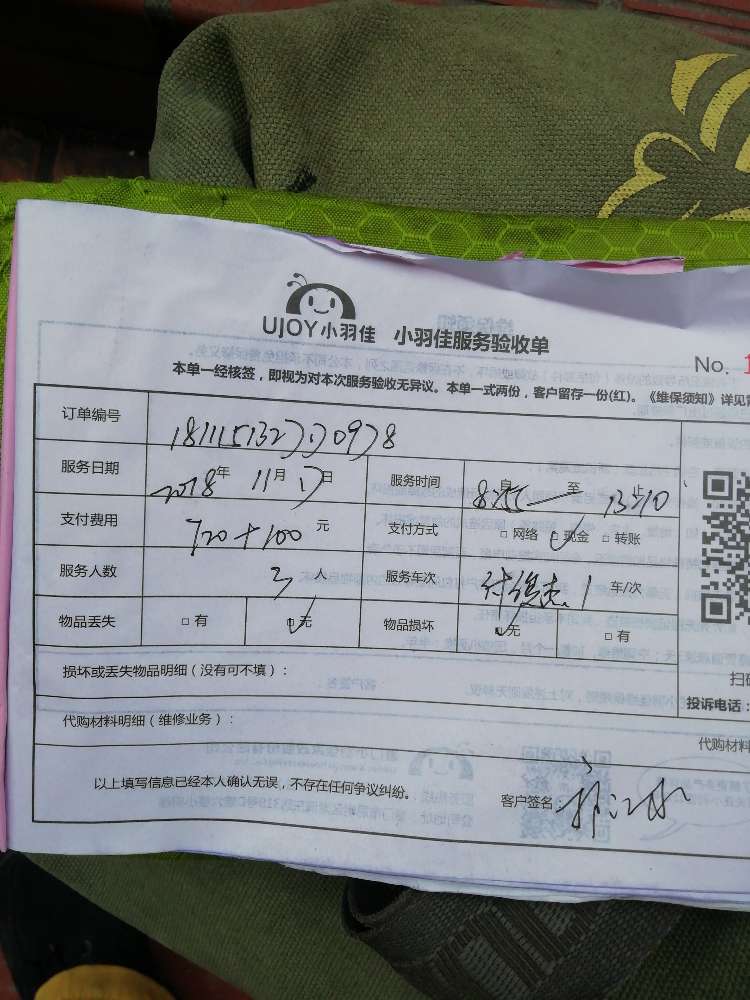 UJOY小羽佳 小羽佳服务验收单
No. 1
本单一经核签，即视为对本次服务验收无异议。本单一式两份，客户留存一份(红)。《维保须知》详见背
订单编号
服务日期 2018年 11月 17日 服务时间 自 8:55 至 13:10 止
支付费用 720+100 元 支付方式 □网络 □现金 □转账
服务人数 3 人 服务车次 1 车/次
物品丢失 □有 □无 物品损坏 □无 □有
损坏或丢失物品明细（没有可不填）：
扫码
投诉电话：
代购材料明细（维修业务）：
代购材料
以上填写信息已经本人确认无误，不存在任何争议纠纷。 客户签名：